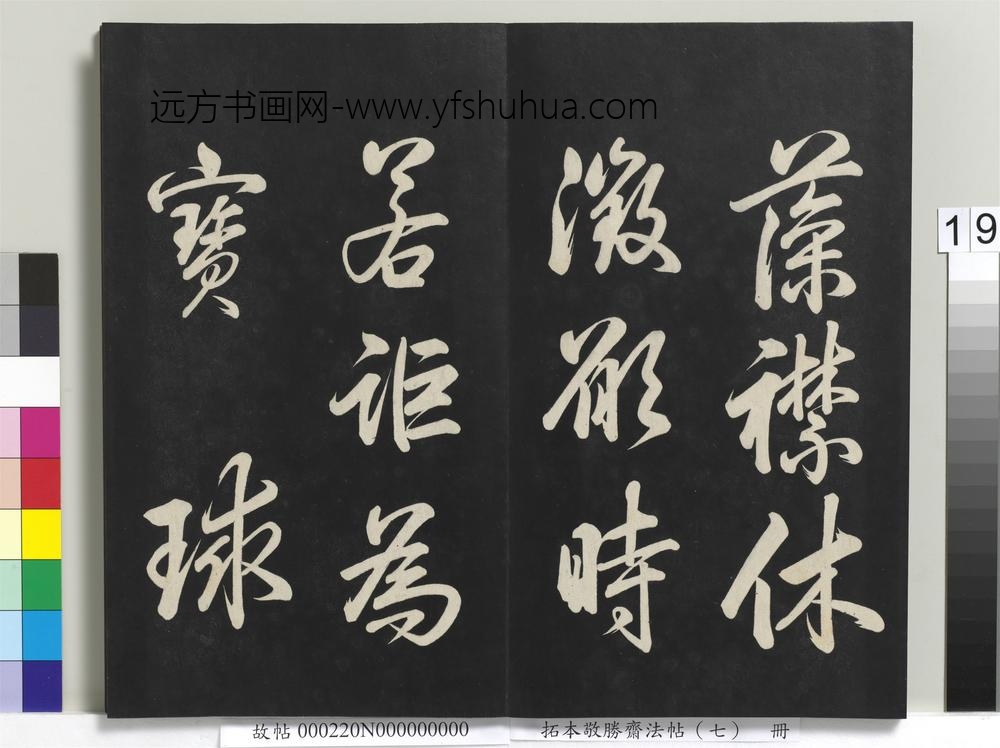 远方书画网-www.yfshuhua.com
藻襟休
徵時
若詎為
寶球
19
故帖 000220N000000000
拓本敬勝齋法帖（七） 冊